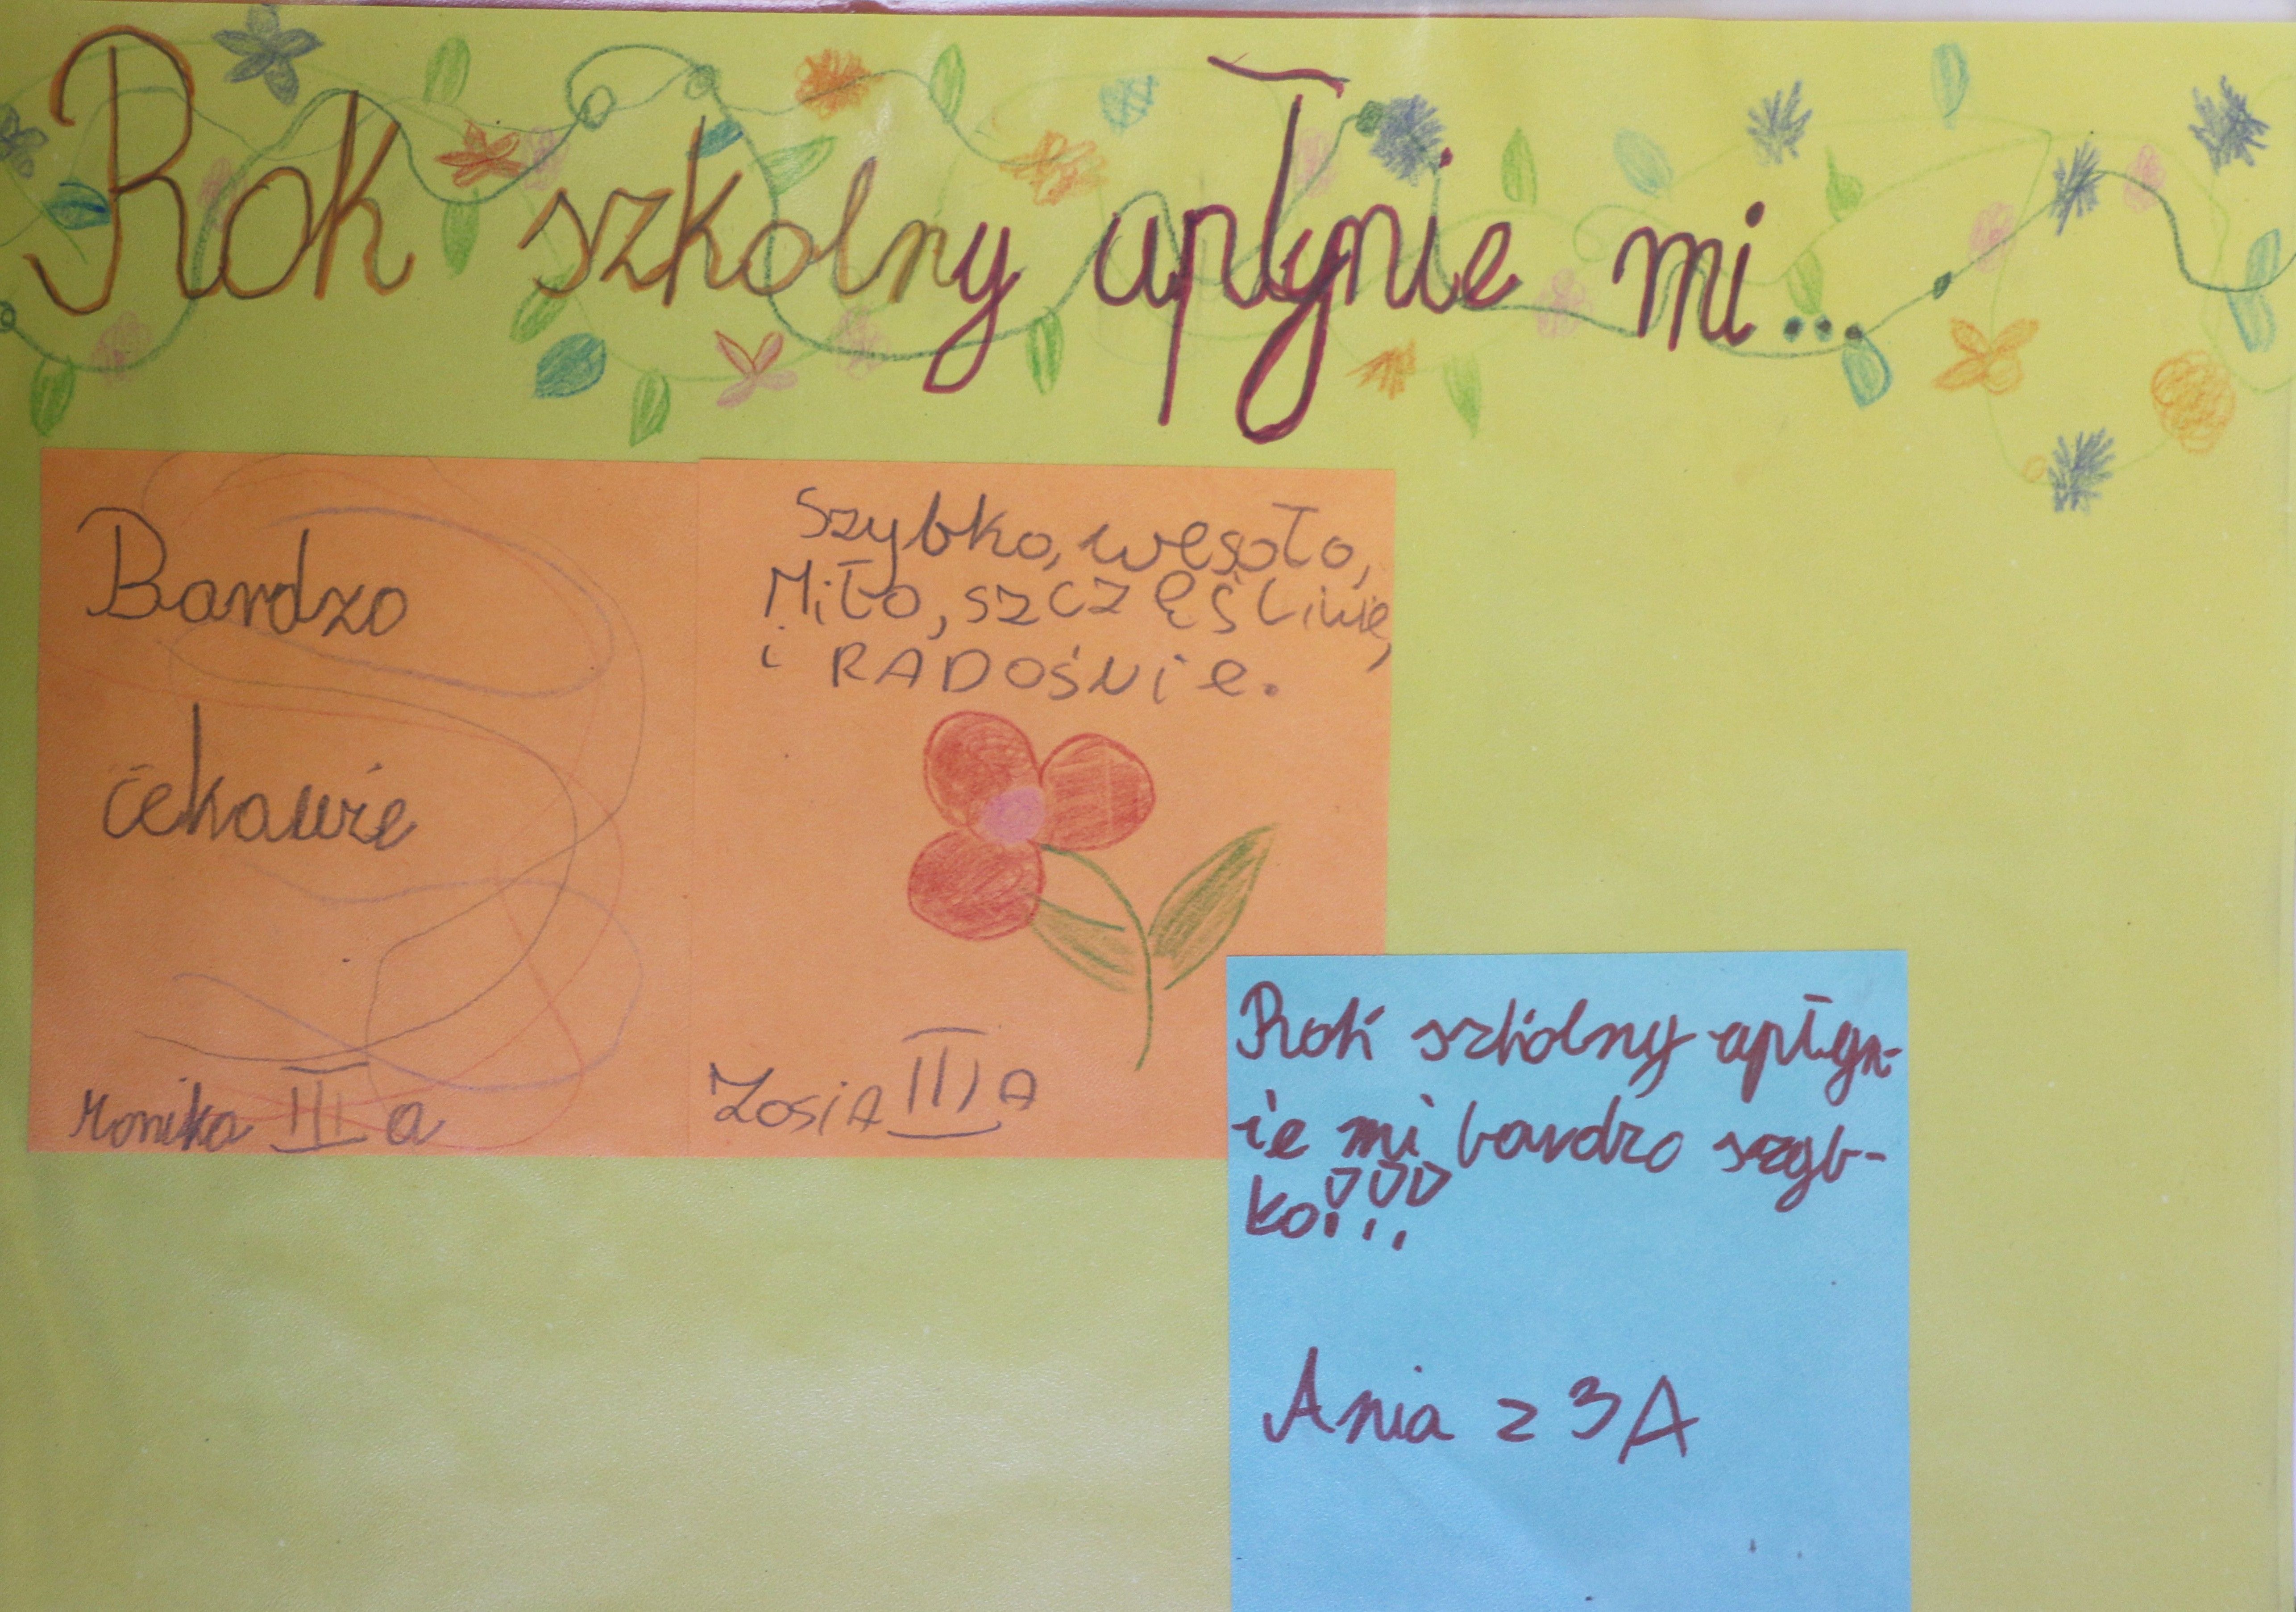 Rok szkolny upłynie mi...
Bardzo
ciekawie
Monika III a
Szybko, wesoło,
Miło, szczęśliwie,
i RADOŚNie.
Zosia III A
Rok szkolny upłyn-
ie mi bardzo szyb-
ko!!!
Ania z 3A